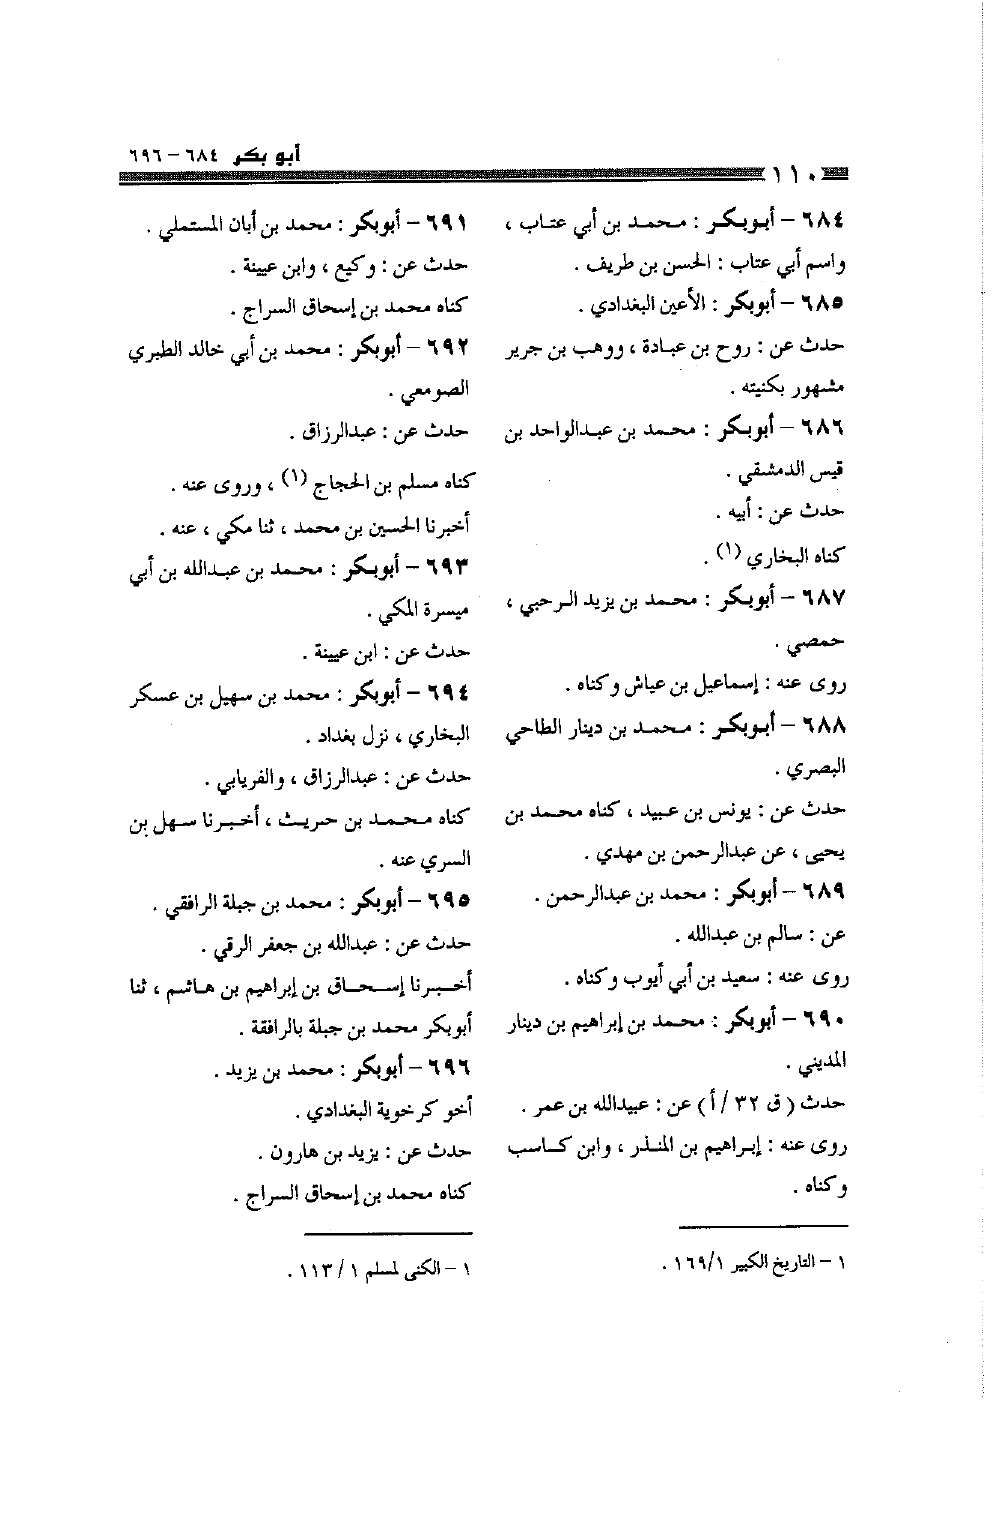 أبو بكر ٦٨٤ - ٦٩٦
١١٠
٦٨٤ - أبوبكر : محمد بن أبي عتاب ،
واسم أبي عتاب : الحسن بن طريف .
٦٨٥ - أبوبكر : الأعين البغدادي .
حدث عن : روح بن عبادة ، ووهب بن جرير
مشهور بكنيته .
٦٨٦ - أبوبكر : محمد بن عبدالواحد بن
قيس الدمشقي .
حدث عن : أبيه .
كناه البخاري (١) .
٦٨٧ - أبوبكر : محمد بن يزيد الرحبي ،
حمصي .
روى عنه : إسماعيل بن عياش وكناه .
٦٨٨ - أبوبكر : محمد بن دينار الطاحي
البصري .
حدث عن : يونس بن عبيد ، كناه محمد بن
يحيى ، عن عبدالرحمن بن مهدي .
٦٨٩ - أبوبكر : محمد بن عبدالرحمن .
عن : سالم بن عبدالله .
روى عنه : سعيد بن أبي أيوب وكناه .
٦٩٠ - أبوبكر : محمد بن إبراهيم بن دينار
المديني .
حدث ( ق ٣٢ / أ ) عن : عبيدالله بن عمر .
روى عنه : إبراهيم بن المنذر ، وابن كاسب
وكناه .
١ - التاريخ الكبير ١/ ١٦٩ .
٦٩١ - أبوبكر : محمد بن أبان المستملي .
حدث عن : وكيع ، وابن عيينة .
كناه محمد بن إسحاق السراج .
٦٩٢ - أبوبكر : محمد بن أبي خالد الطبري
الصومعي .
حدث عن : عبدالرزاق .
كناه مسلم بن الحجاج (١) ، وروى عنه .
أخبرنا الحسين بن محمد ، ثنا مكي ، عنه .
٦٩٣ - أبوبكر : محمد بن عبدالله بن أبي
ميسرة المكي .
حدث عن : ابن عيينة .
٦٩٤ - أبوبكر : محمد بن سهيل بن عسكر
البخاري ، نزل بغداد .
حدث عن : عبدالرزاق ، والفريابي .
كناه محمد بن حريث ، أخبرنا سهل بن
السري عنه .
٦٩٥ - أبوبكر : محمد بن جبلة الرافقي .
حدث عن : عبدالله بن جعفر الرقي .
أخبرنا إسحاق بن إبراهيم بن هاشم ، ثنا
أبوبكر محمد بن جبلة بالرافقة .
٦٩٦ - أبوبكر : محمد بن يزيد .
أخو كرخوية البغدادي .
حدث عن : يزيد بن هارون .
كناه محمد بن إسحاق السراج .
١ - الكنى لمسلم ١ / ١١٣ .